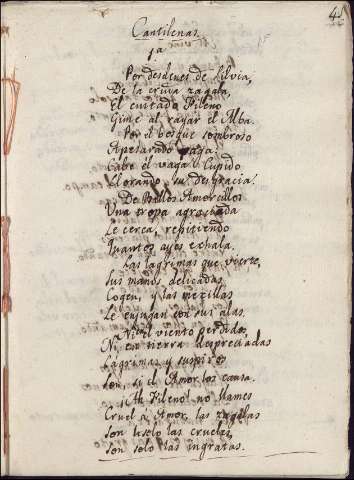 4
Cantilenas.
1a
Por desdenes de Silvia,
De la cruda zagala,
El cuitado Fileno
Gime al rayar el Alba.
Por el bosque sombroso
Apesarado vaga:
Cabe él vaga Cupido
Llorando su desgracia.
De Bellos Amorcillos
Una tropa agraciada
Le cerca, repitiendo
Quantos ayes exhala.
Las lagrimas que vierte,
Sus manos delicadas
Cogen, y las mexillas
Le enjugan con sus alas.
Ni en el viento perdidos
Ni en tierra despreciadas
Lagrimas y suspiros
Son, si el Amor los causa.
¡Ah Fileno! no llames
Cruel a Amor, las zagalas
Son solo las crueles,
Son solo las ingratas.